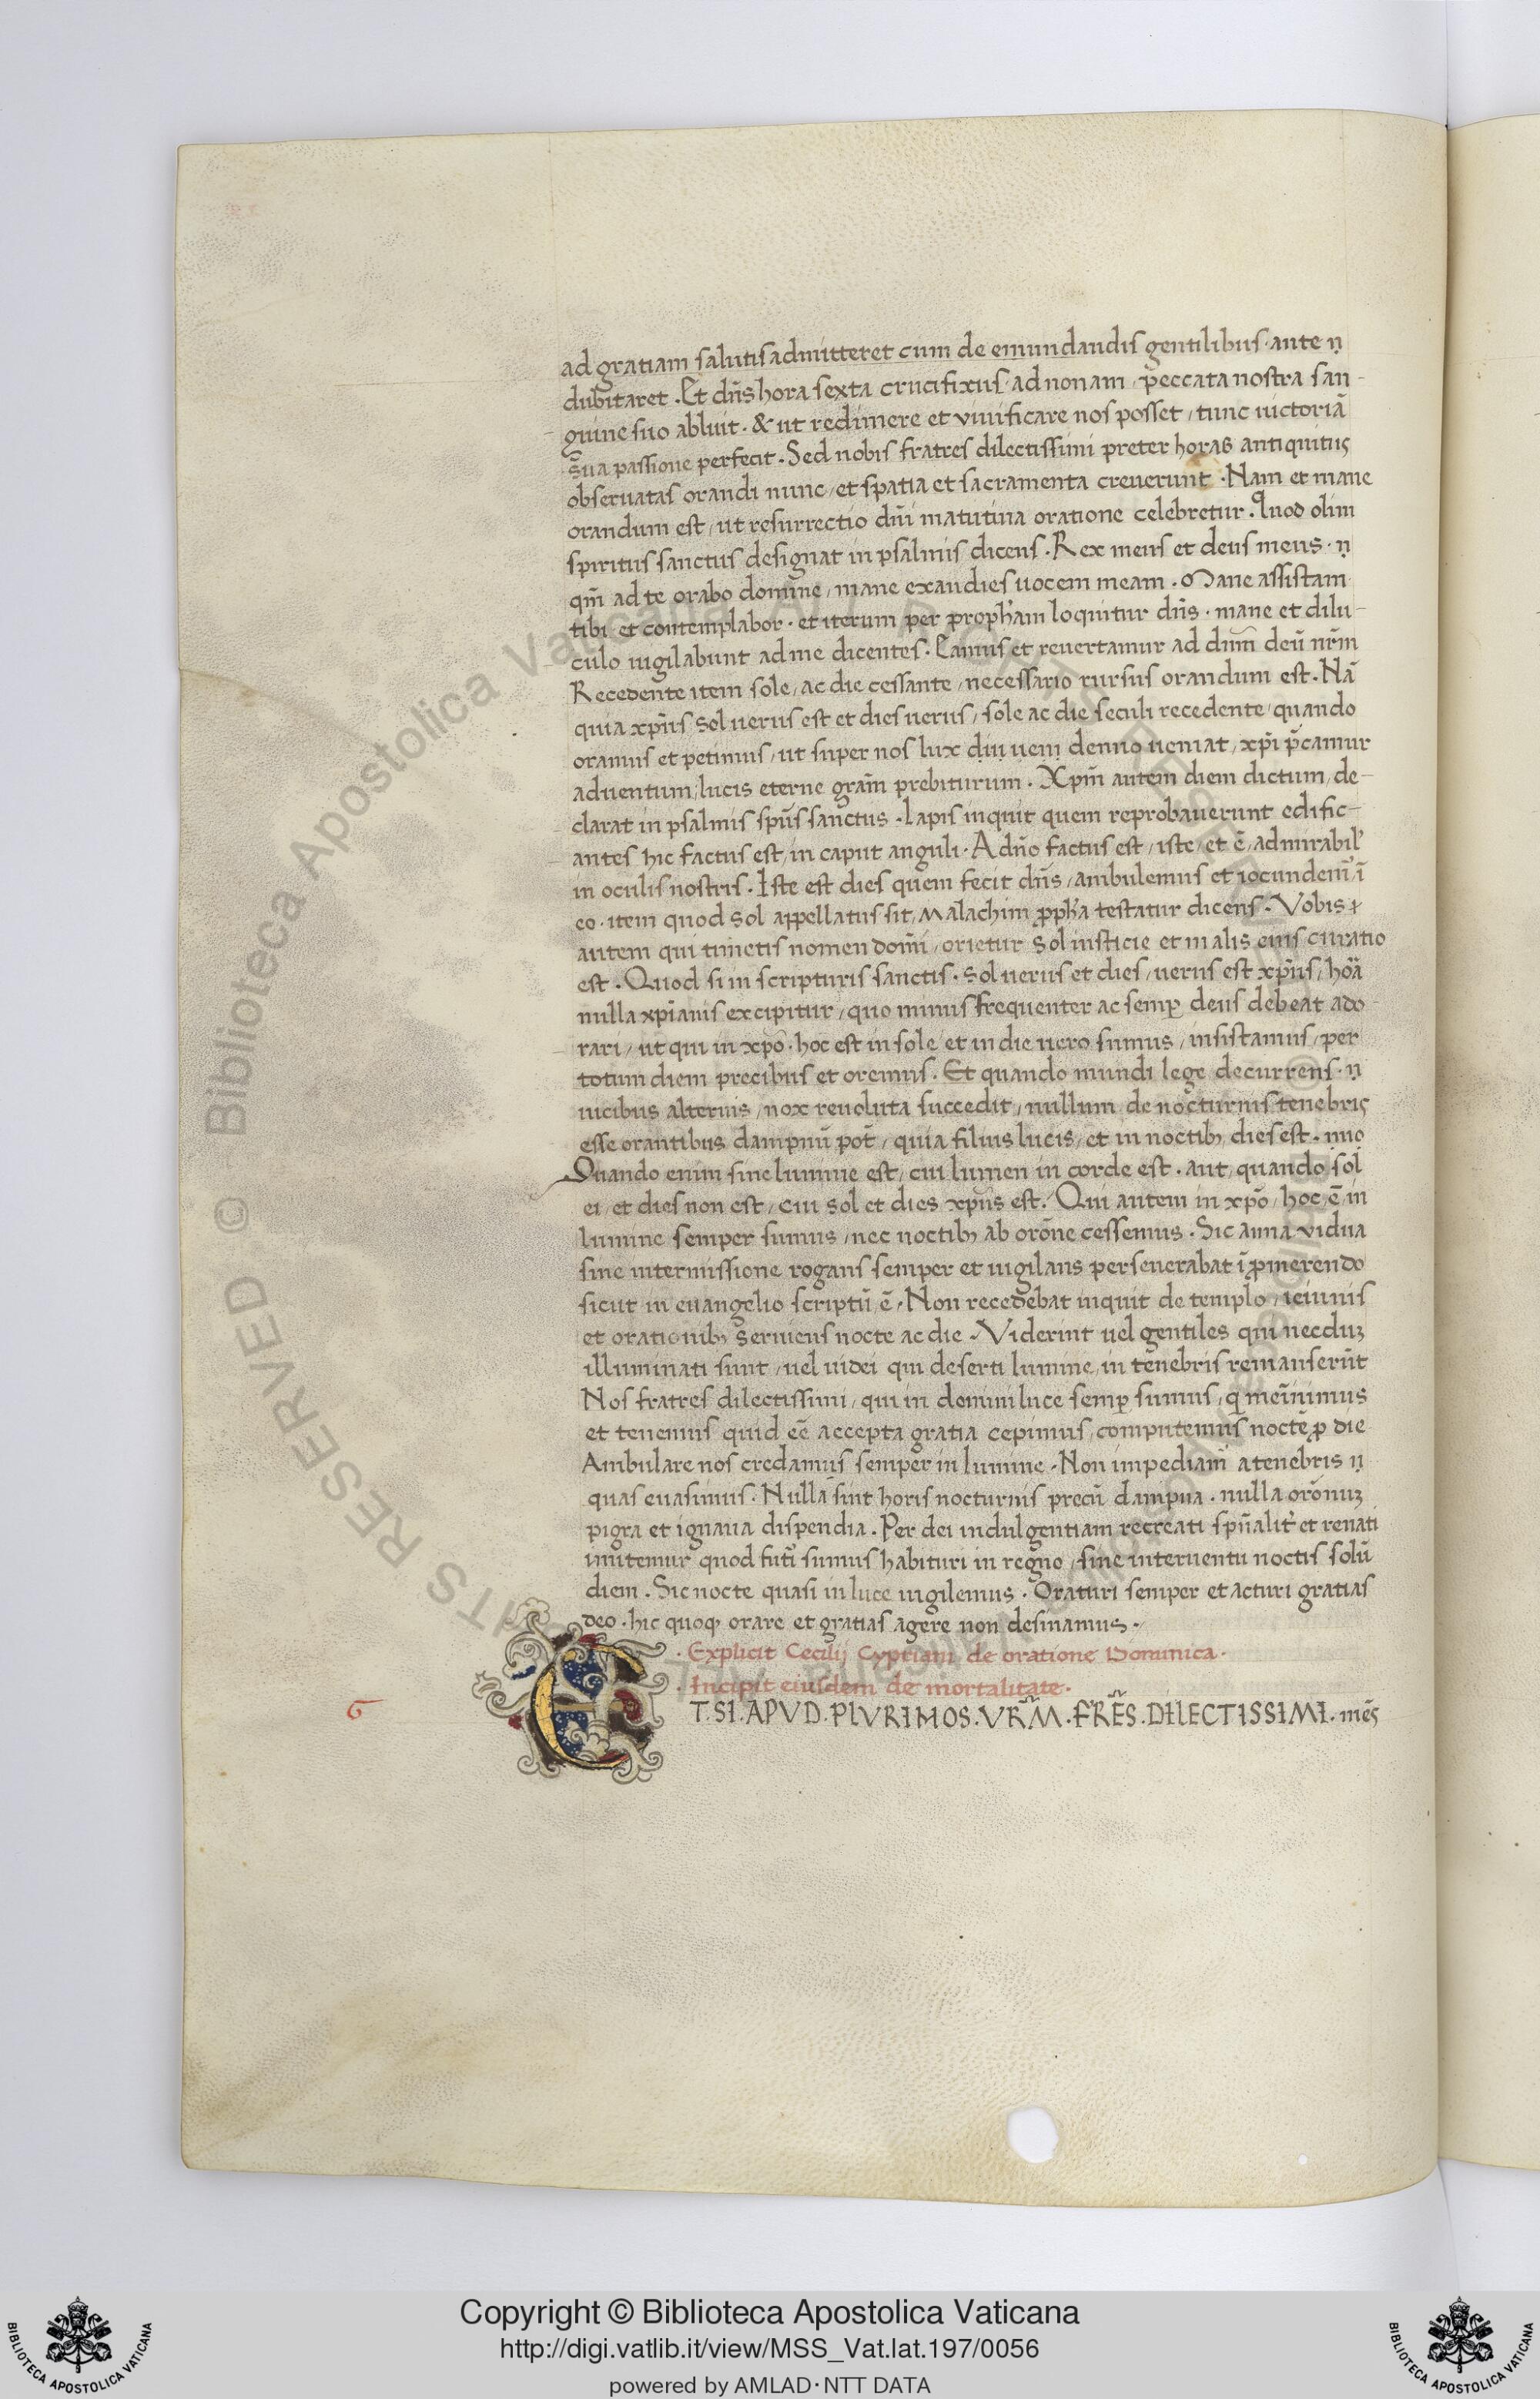 ad gratiam salutis admitteret cum de emundandis gentilibus · ante ṇ
dubitaret . Et dn̄s hora sexta crucifixus · ad nonam / peccata nostra san-
guine suo abluit · & ut redimere et vivificare nos posset / tunc uictoriā
sua passione perfecit . Sed nobis fratres dilectissimi preter horas antiquitus
obseruatas orandi nunc / et spatia et sacramenta creuerunt . Nam et mane
orandum est / ut resurrectio dn̄i matutina oratione celebretur . Quod olim
spiritus sanctus designat in psalmis dicens . Rex meus et deus meus · ṇ
qm̄ ad te orabo domine / mane exaudies uocem meam . Mane assistam
tibi · et contemplabor · et iterum per proph̄am loquitur dn̄s · mane et dilu-
culo uigilabunt ad me dicentes . Eamus et reuertamur ad dn̄m deū nr̄m
Recedente item sole / ac die cessante / necessario rursus orandum est . Nā
quia xp̄us sol uerus est et dies uerus / sole ac die seculi recedente / quando
oramus et petimus / ut super nos lux denuo ueniat / xp̄i p̄camur
aduentum / lucis eterne grām prebiturum . Xpm̄ autem diem dictum / de-
clarat in psalmis spūs sanctus . Lapis inquit quem reprobauerunt edific-
antes hic factus est / in caput anguli . A dn̄o factus est / iste / et ē / admirabil'
in oculis nostris . Iste est dies quem fecit dn̄s / ambulemus et iocundem̄ ī
eo · item quod sol appellatus sit / Malachim p̄ph̄a testatur dicens . Vobis
autem qui timetis nomen domī / orietur sol iusticie et in alis eius curatio
est . Quod si in scripturis sanctis . sol uerus et dies / uerus est xp̄us / horā
nulla xp̄ianis excipitur / quo minus frequenter ac semp̄ deus debeat ado-
rari / ut qui in xpō · hoc est in sole / et in die uero sumus / insistamus / per
totum diem precibus et oremus . Et quando mundi lege decurrens · ṇ
uicibus alternis / nox reuoluta succedit / nullum de nocturnis tenebris
esse orantibus dampnū pot̄ / quia filius lucis / et in noctib; dies est .
Quando enim sine lumine est / cui lumen in corde est . aut / quando sol
ei / et dies non est / cui sol et dies xp̄us est . Qui autem in xpō / hoc / ē in
lumine semper sumus / nec noctib; ab orōne cessemus . Sic anna vidua
sine intermissione rogans semper et uigilans perseuerabat ī p̄merendo
sicut in euangelio scriptū / ē . Non recedebat inquit de templo / ieiunis
et orationib; seruiens nocte ac die . Viderint uel gentiles qui necduȝ
illuminati sunt / uel iudei qui deserti lumine / in tenebris remanserūt
Nos fratres dilectissimi / qui in domini luce semp̄ sumus / q̄ mem̄inimus
et tenemus quid eē accepta gratia cepimus / computemus noctē p̄ die
Ambulare nos credamus semper in lumine . Non impediam̄ a tenebris ṇ
quas euasimus . Nulla sint horis nocturnis precū dampna . nulla orōnuȝ
pigra et ignaua dispendia . Per dei indulgentiam recreati spūalit̄ et renati
imitemur quod fut̄i sumus habituri in regno / sine interuentu noctis solū
diem . Sic nocte quasi in luce uigilemus . Oraturi semper et acturi gratias
deo . hic quoq; orare et gratias agere non desinamus .
· Explicit Cecilij Cypriani de oratione Dominica ·
· Incipit eiusdem de mortalitate ·
6 ET . SI . APVD . PLVRIMOS . VRM̄ . FRĒS . DILECTISSIMI . mēs
Copyright © Biblioteca Apostolica Vaticana
http://digi.vatlib.it/view/MSS_Vat.lat.197/0056
powered by AMLAD·NTT DATA
BIBLIOTECA APOSTOLICA VATICANA
BIBLIOTECA APOSTOLICA VATICANA